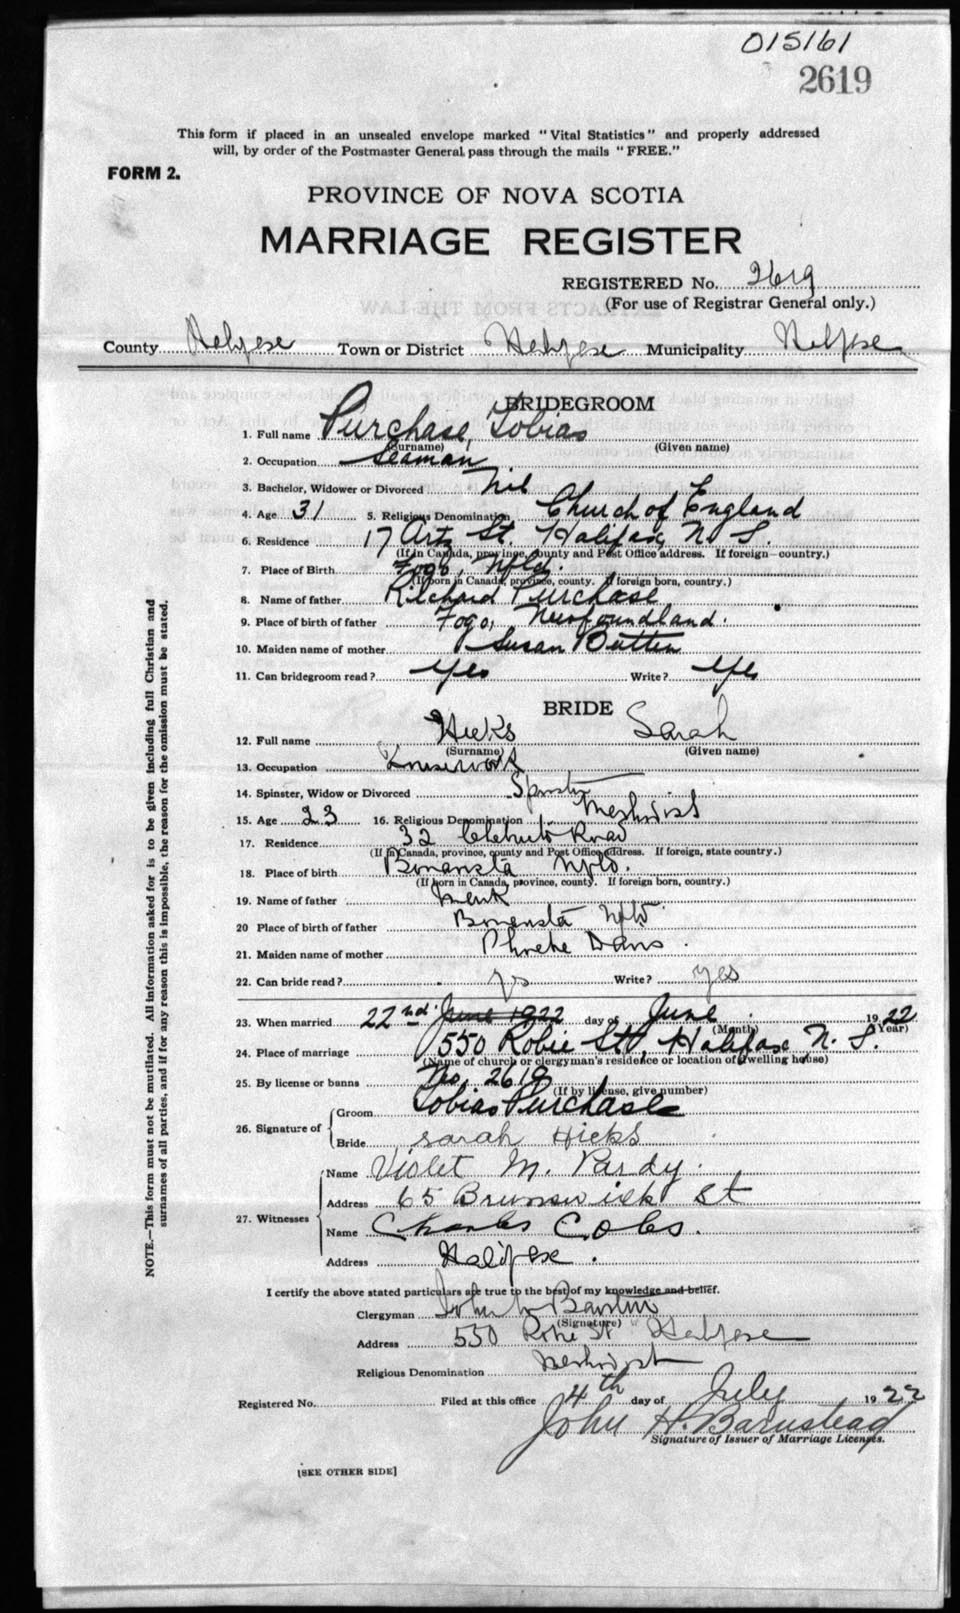 015161
2619
This form if placed in an unsealed envelope marked "Vital Statistics" and properly addressed
will, by order of the Postmaster General pass through the mails "FREE."
FORM 2.
PROVINCE OF NOVA SCOTIA
MARRIAGE REGISTER
REGISTERED No. 2619
(For use of Registrar General only.)
County Halifax Town or District Halifax Municipality Halifax
BRIDEGROOM
1. Full name Purchase, Tobias
(Surname) (Given name)
2. Occupation Seaman
3. Bachelor, Widower or Divorced
4. Age 31 5. Religious Denomination Church of England
6. Residence 17 Artz St. Halifax, N. S.
(If in Canada, province, county and Post Office address. If foreign country.)
7. Place of Birth Fogo, Nfld.
(If born in Canada, province, county. If foreign born, country.)
8. Name of father Richard Purchase
9. Place of birth of father Fogo, Newfoundland.
10. Maiden name of mother Susan
11. Can bridegroom read? Yes Write? Yes
BRIDE
12. Full name Hicks Sarah
(Surname) (Given name)
13. Occupation Housework
14. Spinster, Widow or Divorced Spinster
15. Age 23 16. Religious Denomination Methodist
17. Residence 32 Chebucto Road
(If in Canada, province, county and Post Office address. If foreign, state country.)
18. Place of birth Bonavista Nfld.
(If born in Canada, province, county. If foreign born, country.)
19. Name of father
20 Place of birth of father Bonavista Nfld
21. Maiden name of mother Phoebe
22. Can bride read? yes Write? yes
23. When married 22nd June 1922 day of June 1922
(Month) (Year)
24. Place of marriage 550 Robie St., Halifax N. S.
(Name of church or clergyman's residence or location of dwelling house)
25. By license or banns No. 2619
(If by license, give number)
26. Signature of Groom Tobias Purchase
Bride Sarah Hicks
27. Witnesses Name Violet M. Pardy.
Address 65 Brunswick St
Name Charles Coles.
Address Halifax.
I certify the above stated particulars are true to the best of my knowledge and belief.
Clergyman John W
(Signature)
Address 550 Robie St Halifax
Religious Denomination Methodist
Registered No. Filed at this office 4th day of July 1922
John H. Barnstead
Signature of Issuer of Marriage Licenses.
[SEE OTHER SIDE]
NOTE.—This form must not be mutilated. All information asked for is to be given including full Christian and
surnames of all parties, and if for any reason this is impossible, the reason for the omission must be stated.